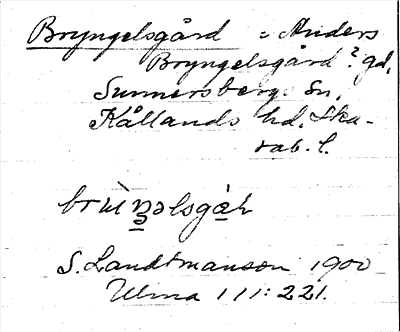 Bryngelsgård = Anders
Bryngelsgård? gd,
Sunnersbergs sn,
Kållands hd, Ska-
rab. l.
S. Landtmanson 1900
Ulma 111: 221.